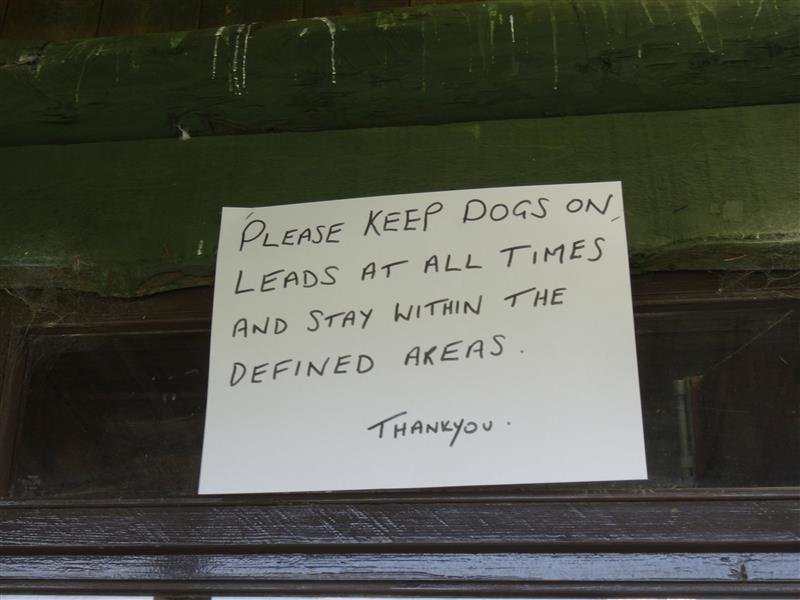 PLEASE KEEP DOGS ON
LEADS AT ALL TIMES
AND STAY WITHIN THE
DEFINED AREAS.
THANKYOU.